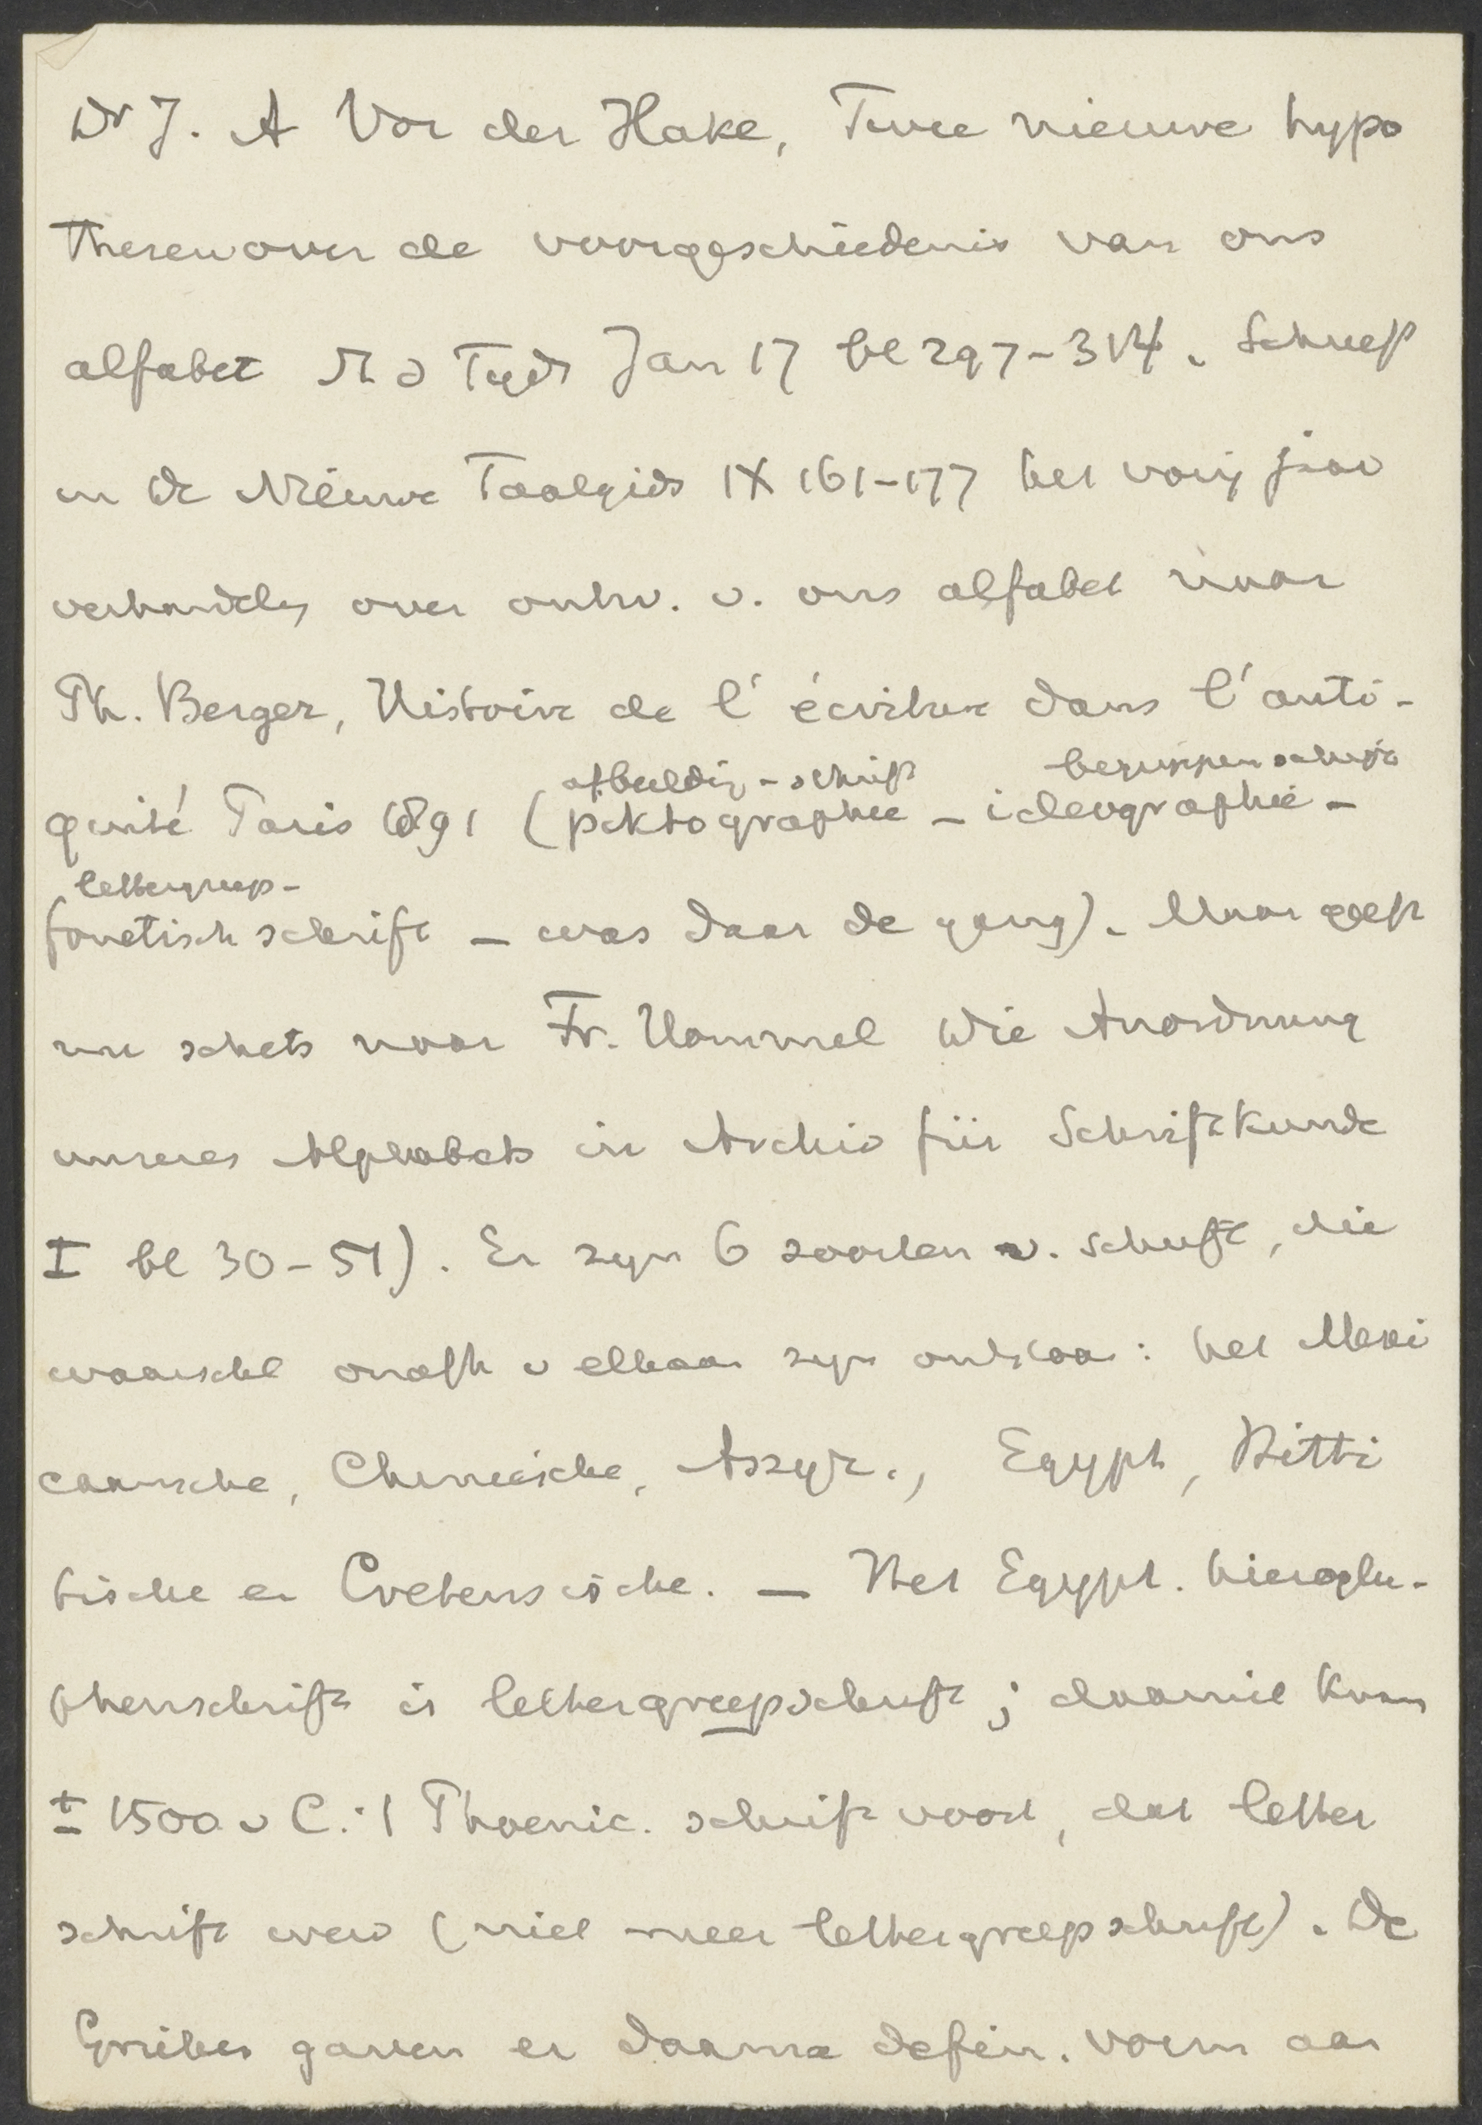 Dr J. A Vor der Hake, Twee nieuwe hypo
thesen over de voorgeschiedenis van ons
alfabet Th Tyds Jan 17 bl 297-314. Schreef
in De Nieuwe Taalgids IX 161-177 het vorig jaar
verhandelg over ontw. v. ons alfabet naar
Ph. Berger, Histoire de l'écriture dans l'anti-
afbeeldig-schrift begrippenschrift
quité Paris 1891 (piktographie - ideographie -
lettergreep-
fonetisch schrift - was daar de gang). Maar geeft
nu schets naar Fr. Hommel Die Anordnung
unseres Alphabets in Archiv für Schriftkunde
I bl 30-51). Er zyn 6 soorten v. schrift, die
waarschl onafh v elkaar zyn ontstaan: het Mexi
caansche, Chineesche, Assyr., Egypt, Hitti
tische en Cretensische. - Het Egypt. hierogly-
phenschrift is lettergreepschrift; daaruit kwam
± 1500 v C. 't Phoenic. schrift voort, dat letter
schrift werd (niet meer lettergreepschrift). De
Grieken gaven er daarna defin. vorm aan